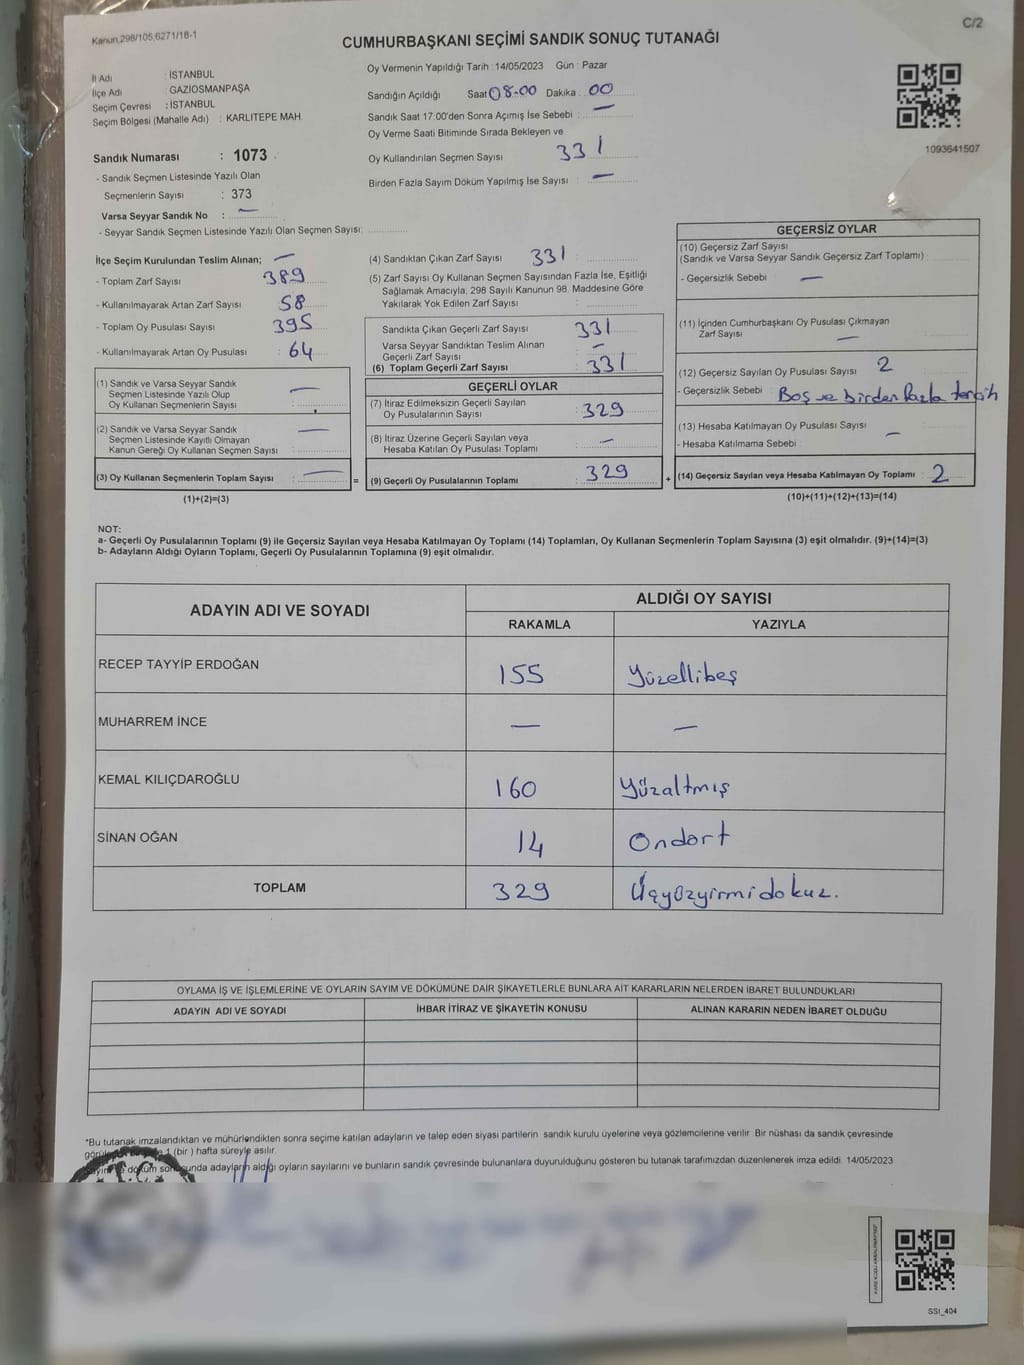 Kanun.298/105,6271/18-1
C/2
CUMHURBAŞKANI SEÇİMİ SANDIK SONUÇ TUTANAĞI
İl Adı : İSTANBUL
İlçe Adı : GAZİOSMANPAŞA
Seçim Çevresi : İSTANBUL
Seçim Bölgesi (Mahalle Adı) : KARLITEPE MAH.
Sandık Numarası : 1073
- Sandık Seçmen Listesinde Yazılı Olan
Seçmenlerin Sayısı : 373
Varsa Seyyar Sandık No : —
- Seyyar Sandık Seçmen Listesinde Yazılı Olan Seçmen Sayısı:
Oy Vermenin Yapıldığı Tarih : 14/05/2023 Gün : Pazar
Sandığın Açıldığı Saat 08-00 Dakika : 00
Sandık Saat 17:00'den Sonra Açımış İse Sebebi : —
Oy Verme Saati Bitiminde Sırada Bekleyen ve
Oy Kullandırılan Seçmen Sayısı 331
Birden Fazla Sayım Döküm Yapılmış İse Sayısı : —
1093641507
İlçe Seçim Kurulundan Teslim Alınan; —
- Toplam Zarf Sayısı 389
- Kullanılmayarak Artan Zarf Sayısı 58
- Toplam Oy Pusulası Sayısı 395
- Kullanılmayarak Artan Oy Pusulası : 64
(1) Sandık ve Varsa Seyyar Sandık
Seçmen Listesinde Yazılı Olup
Oy Kullanan Seçmenlerin Sayısı : —
(2) Sandık ve Varsa Seyyar Sandık
Seçmen Listesinde Kayıtlı Olmayan
Kanun Gereği Oy Kullanan Seçmen Sayısı : —
(3) Oy Kullanan Seçmenlerin Toplam Sayısı : — =
(1)+(2)=(3)
(4) Sandıktan Çıkan Zarf Sayısı 331
(5) Zarf Sayısı Oy Kullanan Seçmen Sayısından Fazla İse, Eşitliği
Sağlamak Amacıyla; 298 Sayılı Kanunun 98. Maddesine Göre
Yakılarak Yok Edilen Zarf Sayısı :
Sandıkta Çıkan Geçerli Zarf Sayısı 331
Varsa Seyyar Sandıktan Teslim Alınan
Geçerli Zarf Sayısı : —
(6) Toplam Geçerli Zarf Sayısı : 331
GEÇERLİ OYLAR
(7) İtiraz Edilmeksizin Geçerli Sayılan
Oy Pusulalarının Sayısı : 329
(8) İtiraz Üzerine Geçerli Sayılan veya
Hesaba Katılan Oy Pusulası Toplamı : —
(9) Geçerli Oy Pusulalarının Toplamı : 329 +
GEÇERSİZ OYLAR
(10) Geçersiz Zarf Sayısı
(Sandık ve Varsa Seyyar Sandık Geçersiz Zarf Toplamı) :
- Geçersizlik Sebebi : —
(11) İçinden Cumhurbaşkanı Oy Pusulası Çıkmayan
Zarf Sayısı : —
(12) Geçersiz Sayılan Oy Pusulası Sayısı : 2
- Geçersizlik Sebebi : Boş ve birden fazla tercih
(13) Hesaba Katılmayan Oy Pusulası Sayısı : —
- Hesaba Katılmama Sebebi :
(14) Geçersiz Sayılan veya Hesaba Katılmayan Oy Toplamı : 2
(10)+(11)+(12)+(13)=(14)
NOT:
a- Geçerli Oy Pusulalarının Toplamı (9) ile Geçersiz Sayılan veya Hesaba Katılmayan Oy Toplamı (14) Toplamları, Oy Kullanan Seçmenlerin Toplam Sayısına (3) eşit olmalıdır. (9)+(14)=(3)
b- Adayların Aldığı Oyların Toplamı, Geçerli Oy Pusulalarının Toplamına (9) eşit olmalıdır.
ADAYIN ADI VE SOYADI ALDIĞI OY SAYISI
RAKAMLA YAZIYLA
RECEP TAYYİP ERDOĞAN 155 Yüzellibeş
MUHARREM İNCE — —
KEMAL KILIÇDAROĞLU 160 Yüzaltmış
SİNAN OĞAN 14 Ondort
TOPLAM 329 Üçyüzyirmidokuz.
OYLAMA İŞ VE İŞLEMLERİNE VE OYLARIN SAYIM VE DÖKÜMÜNE DAİR ŞİKAYETLERLE BUNLARA AİT KARARLARIN NELERDEN İBARET BULUNDUKLARI
ADAYIN ADI VE SOYADI İHBAR İTİRAZ VE ŞİKAYETİN KONUSU ALINAN KARARIN NEDEN İBARET OLDUĞU
*Bu tutanak imzalandıktan ve mühürlendikten sonra seçime katılan adayların ve talep eden siyasi partilerin sandık kurulu üyelerine veya gözlemcilerine verilir. Bir nüshası da sandık çevresinde
1 (bir) hafta süreyle asılır.
döküm sonucunda adayların aldığı oyların sayılarını ve bunların sandık çevresinde bulunanlara duyurulduğunu gösteren bu tutanak tarafımızdan düzenlenerek imza edildi. 14/05/2023
SSI_404